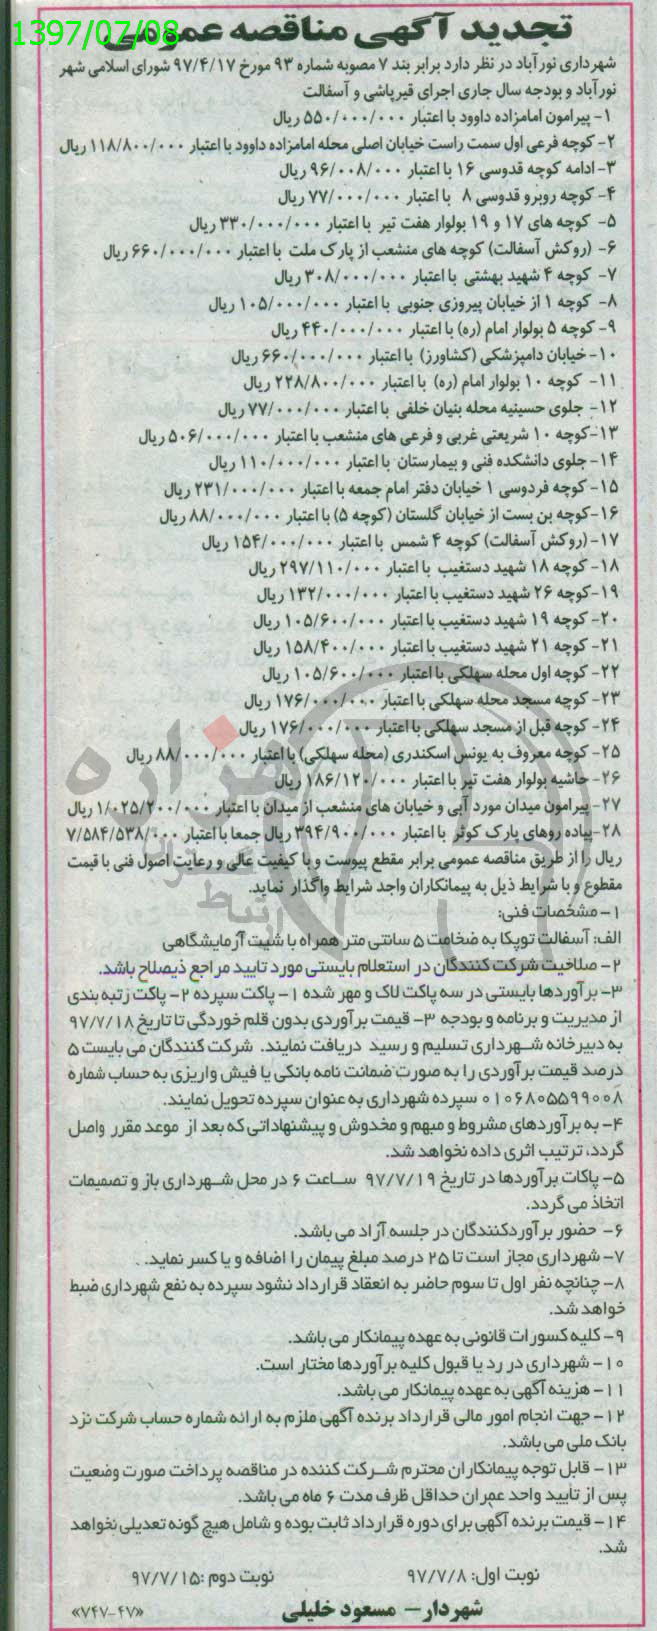 1397/07/08
تجدید آگهی مناقصه عمومی
شهرداری نورآباد در نظر دارد برابر بند ۷ مصوبه شماره ۹۳ مورخ ۹۷/۴/۱۷ شورای اسلامی شهر
نورآباد و بودجه سال جاری اجرای قیرپاشی و آسفالت
۱- پیرامون امامزاده داوود با اعتبار ۵۵۰/۰۰۰/۰۰۰ ریال
۲- کوچه فرعی اول سمت راست خیابان اصلی محله امامزاده داوود با اعتبار ۱۱۸/۸۰۰/۰۰۰ ریال
۳- ادامه کوچه قدوسی ۱۶ با اعتبار ۹۶/۰۰۸/۰۰۰ ریال
۴- کوچه روبرو قدوسی ۸ با اعتبار ۷۷/۰۰۰/۰۰۰ ریال
۵- کوچه های ۱۷ و ۱۹ بولوار هفت تیر با اعتبار ۳۳۰/۰۰۰/۰۰۰ ریال
۶- (روکش آسفالت) کوچه های منشعب از پارک ملت با اعتبار ۶۶۰/۰۰۰/۰۰۰ ریال
۷- کوچه ۴ شهید بهشتی با اعتبار ۳۰۸/۰۰۰/۰۰۰ ریال
۸- کوچه ۱ از خیابان پیروزی جنوبی با اعتبار ۱۰۵/۰۰۰/۰۰۰ ریال
۹- کوچه ۵ بولوار امام (ره) با اعتبار ۴۴۰/۰۰۰/۰۰۰ ریال
۱۰- خیابان دامپزشکی (کشاورز) با اعتبار ۶۶۰/۰۰۰/۰۰۰ ریال
۱۱- کوچه ۱۰ بولوار امام (ره) با اعتبار ۲۲۸/۸۰۰/۰۰۰ ریال
۱۲- جلوی حسینیه محله بنیان خلفی با اعتبار ۷۷/۰۰۰/۰۰۰ ریال
۱۳- کوچه ۱۰ شریعتی غربی و فرعی های منشعب با اعتبار ۵۰۶/۰۰۰/۰۰۰ ریال
۱۴- جلوی دانشکده فنی و بیمارستان با اعتبار ۱۱۰/۰۰۰/۰۰۰ ریال
۱۵- کوچه فردوسی ۱ خیابان دفتر امام جمعه با اعتبار ۲۳۱/۰۰۰/۰۰۰ ریال
۱۶- کوچه بن بست از خیابان گلستان (کوچه ۵) با اعتبار ۸۸/۰۰۰/۰۰۰ ریال
۱۷- (روکش آسفالت) کوچه ۴ شمس با اعتبار ۱۵۴/۰۰۰/۰۰۰ ریال
۱۸- کوچه ۱۸ شهید دستغیب با اعتبار ۲۹۷/۱۱۰/۰۰۰ ریال
۱۹- کوچه ۲۶ شهید دستغیب با اعتبار ۱۳۲/۰۰۰/۰۰۰ ریال
۲۰- کوچه ۱۹ شهید دستغیب با اعتبار ۱۰۵/۶۰۰/۰۰۰ ریال
۲۱- کوچه ۲۱ شهید دستغیب با اعتبار ۱۵۸/۴۰۰/۰۰۰ ریال
۲۲- کوچه اول محله سهلکی با اعتبار ۱۰۵/۶۰۰/۰۰۰ ریال
۲۳- کوچه مسجد محله سهلکی با اعتبار ۱۷۶/۰۰۰/۰۰۰ ریال
۲۴- کوچه قبل از مسجد سهلکی با اعتبار ۱۷۶/۰۰۰/۰۰۰ ریال
۲۵- کوچه معروف به یونس اسکندری (محله سهلکی) با اعتبار ۸۸/۰۰۰/۰۰۰ ریال
۲۶- حاشیه بولوار هفت تیر با اعتبار ۱۸۶/۱۲۰/۰۰۰ ریال
۲۷- پیرامون میدان مورد آبی و خیابان های منشعب از میدان با اعتبار ۱/۰۲۵/۲۰۰/۰۰۰ ریال
۲۸- پیاده روهای پارک کوثر با اعتبار ۳۹۴/۹۰۰/۰۰۰ ریال جمعا با اعتبار ۷/۵۸۴/۵۳۸/۰۰۰
ریال را از طریق مناقصه عمومی برابر مقطع پیوست و با کیفیت عالی و رعایت اصول فنی با قیمت
مقطوع و با شرایط ذیل به پیمانکاران واجد شرایط واگذار نماید.
۱- مشخصات فنی:
الف: آسفالت توپکا به ضخامت ۵ سانتی متر همراه با شیت آزمایشگاهی
۲- صلاحیت شرکت کنندگان در استعلام بایستی مورد تایید مراجع ذیصلاح باشد.
۳- برآوردها بایستی در سه پاکت لاک و مهر شده ۱- پاکت سپرده ۲- پاکت رتبه بندی
از مدیریت و برنامه و بودجه ۳- قیمت برآوردی بدون قلم خوردگی تا تاریخ ۹۷/۷/۱۸
به دبیرخانه شهرداری تسلیم و رسید دریافت نمایند. شرکت کنندگان می بایست ۵
درصد قیمت برآوردی را به صورت ضمانت نامه بانکی یا فیش واریزی به حساب شماره
۰۱۰۶۸۰۵۵۹۹۰۰۸ سپرده شهرداری به عنوان سپرده تحویل نمایند.
۴- به برآوردهای مشروط و مبهم و مخدوش و پیشنهاداتی که بعد از موعد مقرر واصل
گردد، ترتیب اثری داده نخواهد شد.
۵- پاکات برآوردها در تاریخ ۹۷/۷/۱۹ ساعت ۶ در محل شهرداری باز و تصمیمات
اتخاذ می گردد.
۶- حضور برآوردکنندگان در جلسه آزاد می باشد.
۷- شهرداری مجاز است تا ۲۵ درصد مبلغ پیمان را اضافه و یا کسر نماید.
۸- چنانچه نفر اول تا سوم حاضر به انعقاد قرارداد نشود سپرده به نفع شهرداری ضبط
خواهد شد.
۹- کلیه کسورات قانونی به عهده پیمانکار می باشد.
۱۰- شهرداری در رد یا قبول کلیه برآوردها مختار است.
۱۱- هزینه آگهی به عهده پیمانکار می باشد.
۱۲- جهت انجام امور مالی قرارداد برنده آگهی ملزم به ارائه شماره حساب شرکت نزد
بانک ملی می باشد.
۱۳- قابل توجه پیمانکاران محترم شرکت کننده در مناقصه پرداخت صورت وضعیت
پس از تأیید واحد عمران حداقل ظرف مدت ۶ ماه می باشد.
۱۴- قیمت برنده آگهی برای دوره قرارداد ثابت بوده و شامل هیچ گونه تعدیلی نخواهد
شد.
نوبت اول: ۹۷/۷/۸ نوبت دوم: ۹۷/۷/۱۵
شهردار- مسعود خلیلی
«۷۴۷-۴۷»
هزاره